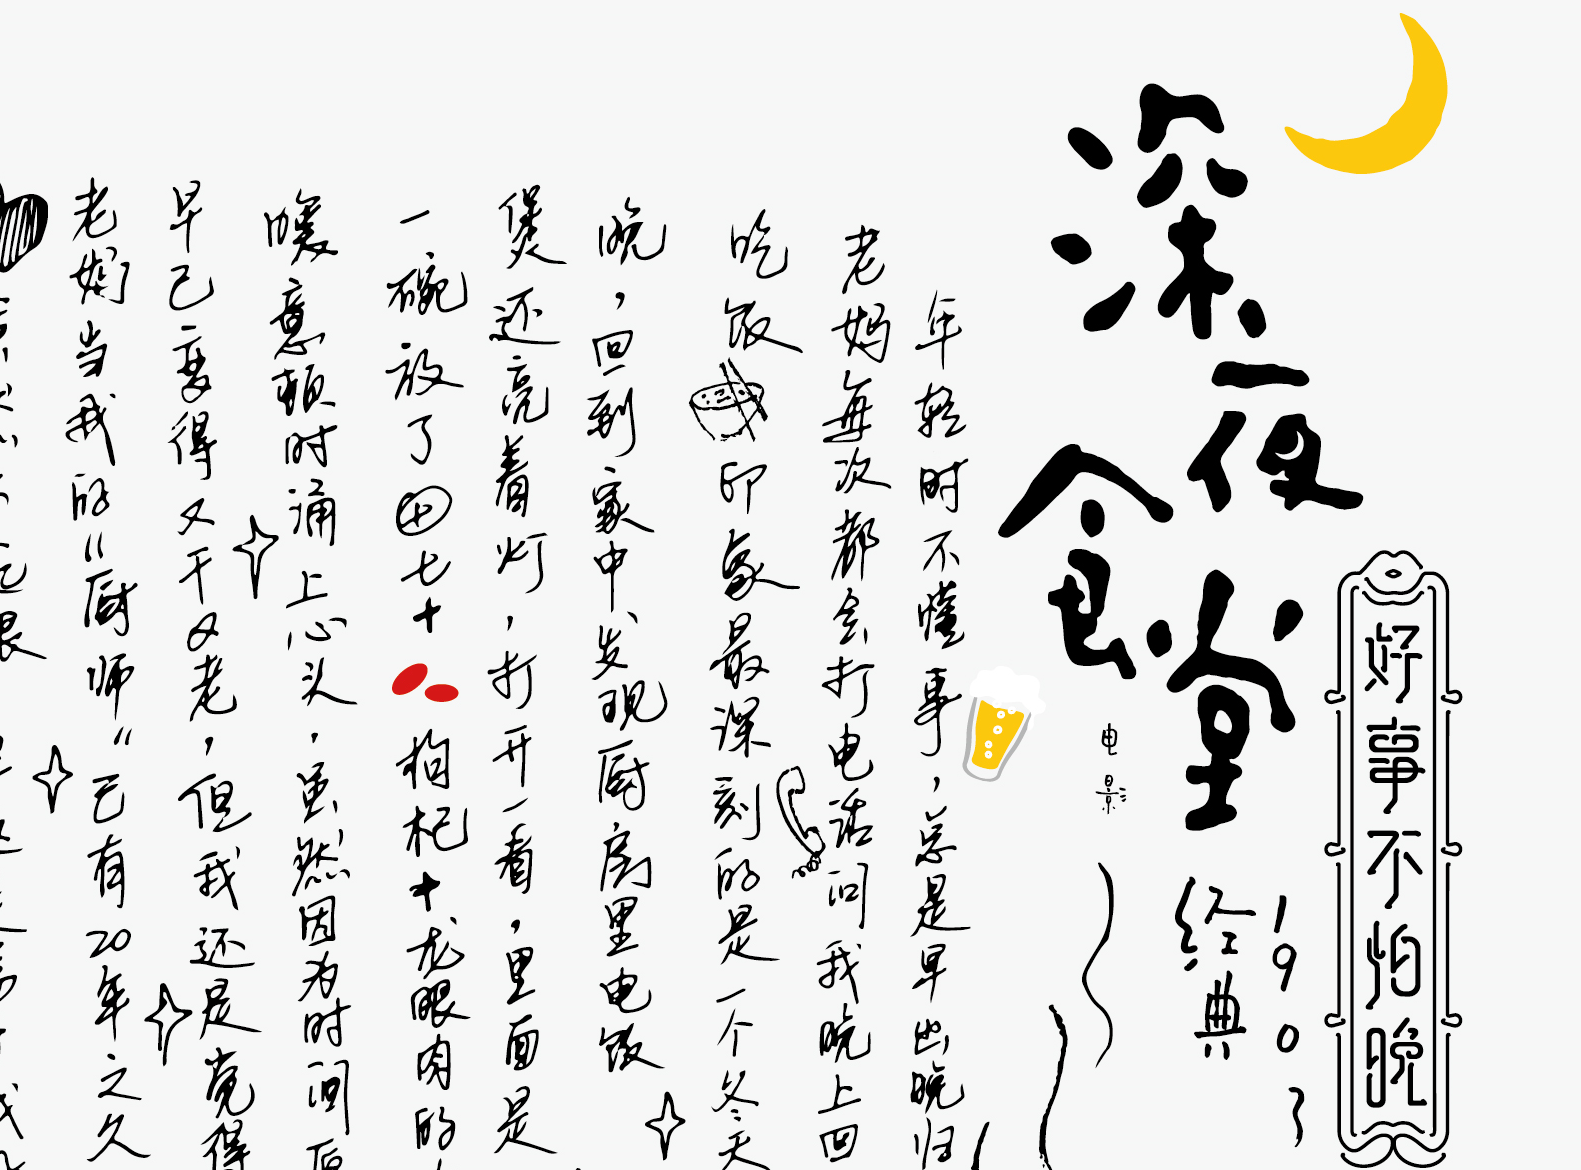 好事不怕晚
深夜
食堂
电影
1903
经典
年轻时不懂事，总是早出晚归
老妈每次都会打电话问我晚上回
吃饭 印象最深刻的是一个冬天
晚，回到家中发现厨房里电饭
煲还亮着灯，打开一看，里面是
一碗放了田七+枸杞+龙眼肉的
暖意顿时涌上心头，虽然因为时间
早已变得又干又老，但我还是觉得
老妈当我的“厨师”已有20年之久